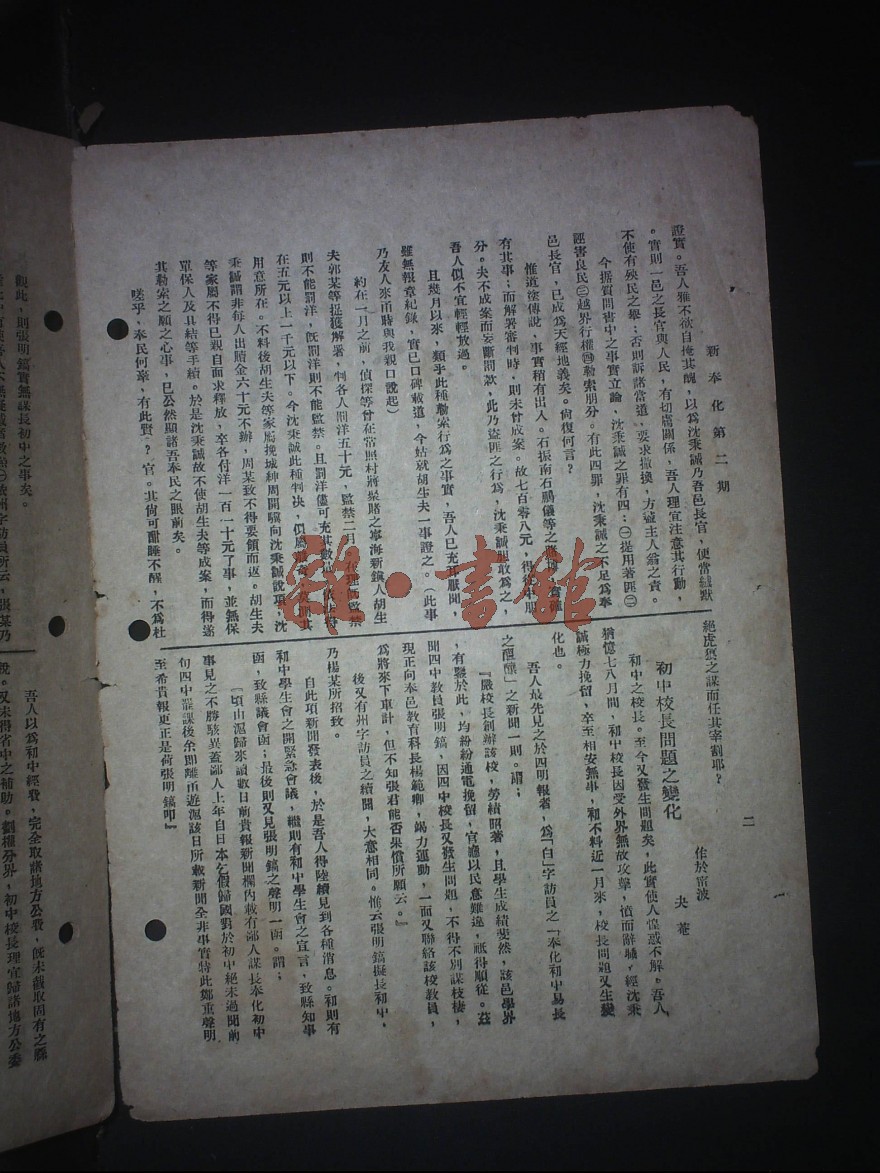 新奉化第二期
二
證實。吾人雅不欲自掩其醜,以為沈秉誠乃吾邑長官,便當緘默
。實則一邑之長官與人民,有切膚關係,吾人理宜注意其行動,
不使有殃民之舉;否則訴諸當道,要求撤換,方盡主人翁之責。
今據質問書中之事實立論,沈秉誠之罪有四:㊀提用著匪㊁
誣害良民㊂越界行權㊃勒索朋分。有此四罪,沈秉誠之不足為奉
邑長官,已成為天經地義矣。尙復何言?
惟道塗傳說,事實稍有出人。石振南石鵬儀等之賭博,為確
有其事;而解署審判時,則未曾成案。故七百零八元,得
分。夫不成案而妄斷罰款,此乃盜匪之行為,沈秉誠胆敢為之,
吾人似不宜輕輕放過。
且幾月以來,類乎此種勒索行為之事實,吾人已充耳厭聞,
雖無報章紀錄,實已口碑載道,今姑就胡生夫一事證之。(此事
乃友人來甬時與我親口說起)
約在一月之前,偵探等曾在常照村將聚賭之寧海新鎮人胡生
夫郭某等捉獲解署,判各人罰洋五十元,監禁二月。在理旣監禁
則不能罰洋,旣罰洋則不能監禁。且罰洋儘可充其數
在五元以上一千元以下。今沈秉誠此種判决,似屬
用意所在。不料後胡生夫等家屬挽城紳周開驤向沈秉誠說項,沈
秉誠謂非每人出賭金六十元不辦,周某致不得要領而返。胡生夫
等家屬不得已親自面求釋放,卒各付洋一百一十元了事,並無保
單保人及具結等手續。於是沈秉誠故不使胡生夫等成案,而得遂
其勒索之願之心事,已公然顯諸吾奉民之眼前矣。
嗟乎,奉民何辜,有此賢?官。其尙可酣睡不醒,不為杜
絕虎狼之謀而任其宰割耶?
初中校長問題之變化
作於甯波
夬菴
初中之校長。至今又發生問題矣,此實使人惶惑不解。吾人
猶憶七八月間,初中校長因受外界無故攻擊,憤而辭職,經沈秉
誠極力挽留,卒至相安無事,初不料近一月來,校長問題又生變
化也。
吾人最先見之於四明報者,為「白」字訪員之「奉化初中易長
之醞釀」之新聞一則。謂;
『嚴校長創辦該校,勞績昭著,且學生成績斐然,該邑學界
,有鑒於此,均紛紛通電挽留,官廳以民意難違,祇得順從。茲
聞四中敎員張明鎬,因四中校長又發生問題,不得不別謀枝棲,
現正向奉邑敎育科長楊範卿,竭力運動,一面又聯絡該校敎員,
為將來下車計,但不知張君能否果償所願云。』
後又有州字訪員之續聞,大意相同。惟云張明鎬擬長初中,
乃楊某所招致。
自此項新聞發表後,於是吾人得陸續見到各種消息。初則有
初中學生會之開緊急會議,繼則有初中學生會之宣言,致縣知事
函,致縣議會函;最後則又見張明鎬之聲明一函。謂;
『頃由滬歸來讀數日前貴報新聞欄內載有鄙人謀長奉化初中
事見之不勝駭異蓋鄙人上年自日本乞假歸國對於初中絕未過聞前
旬四中罷課後余即離甬遊滬該日所載新聞全非事實特此鄭重聲明
至希貴報更正是荷張明鎬叩』
觀此,則張明鎬實無謀長初中之事矣。
吾人以為初中經費,完全取諸地方公費,旣未截取固有之縣
稅。又未得省中之補助。劃權分界,初中校長理宜歸諸地方公委